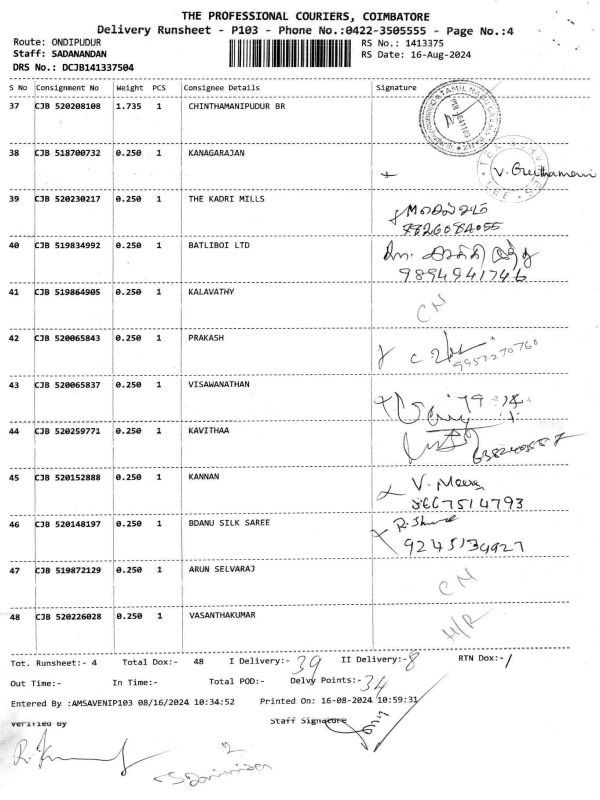 THE PROFESSIONAL COURIERS, COIMBATORE
Delivery Runsheet - P103 - Phone No.:0422-3505555 - Page No.:4
Route: ONDIPUDUR RS No.: 1413375
Staff: SADANANDAN RS Date: 16-Aug-2024
DRS No.: DCJB141337504
S No Consignment No Weight PCS Consignee Details Signature
37 CJB 520208108 1.735 1 CHINTHAMANIPUDUR BR
38 CJB 518700732 0.250 1 KANAGARAJAN
39 CJB 520230217 0.250 1 THE KADRI MILLS
40 CJB 519834992 0.250 1 BATLIBOI LTD
9894941746
41 CJB 519864905 0.250 1 KALAVATHY CN
42 CJB 520065843 0.250 1 PRAKASH
43 CJB 520065837 0.250 1 VISAWANATHAN
44 CJB 520259771 0.250 1 KAVITHAA
45 CJB 520152888 0.250 1 KANNAN V. Meera
46 CJB 520148197 0.250 1 BDANU SILK SAREE
47 CJB 519872129 0.250 1 ARUN SELVARAJ CN
48 CJB 520226028 0.250 1 VASANTHAKUMAR H/R
Tot. Runsheet:- 4 Total Dox:- 48 I Delivery:- 39 II Delivery:- 8 RTN Dox:- /
Out Time:- In Time:- Total POD:- Delvy Points:- 34
Entered By :AMSAVENIP103 08/16/2024 10:34:52 Printed On: 16-08-2024 10:59:31
Verified By Staff Signature